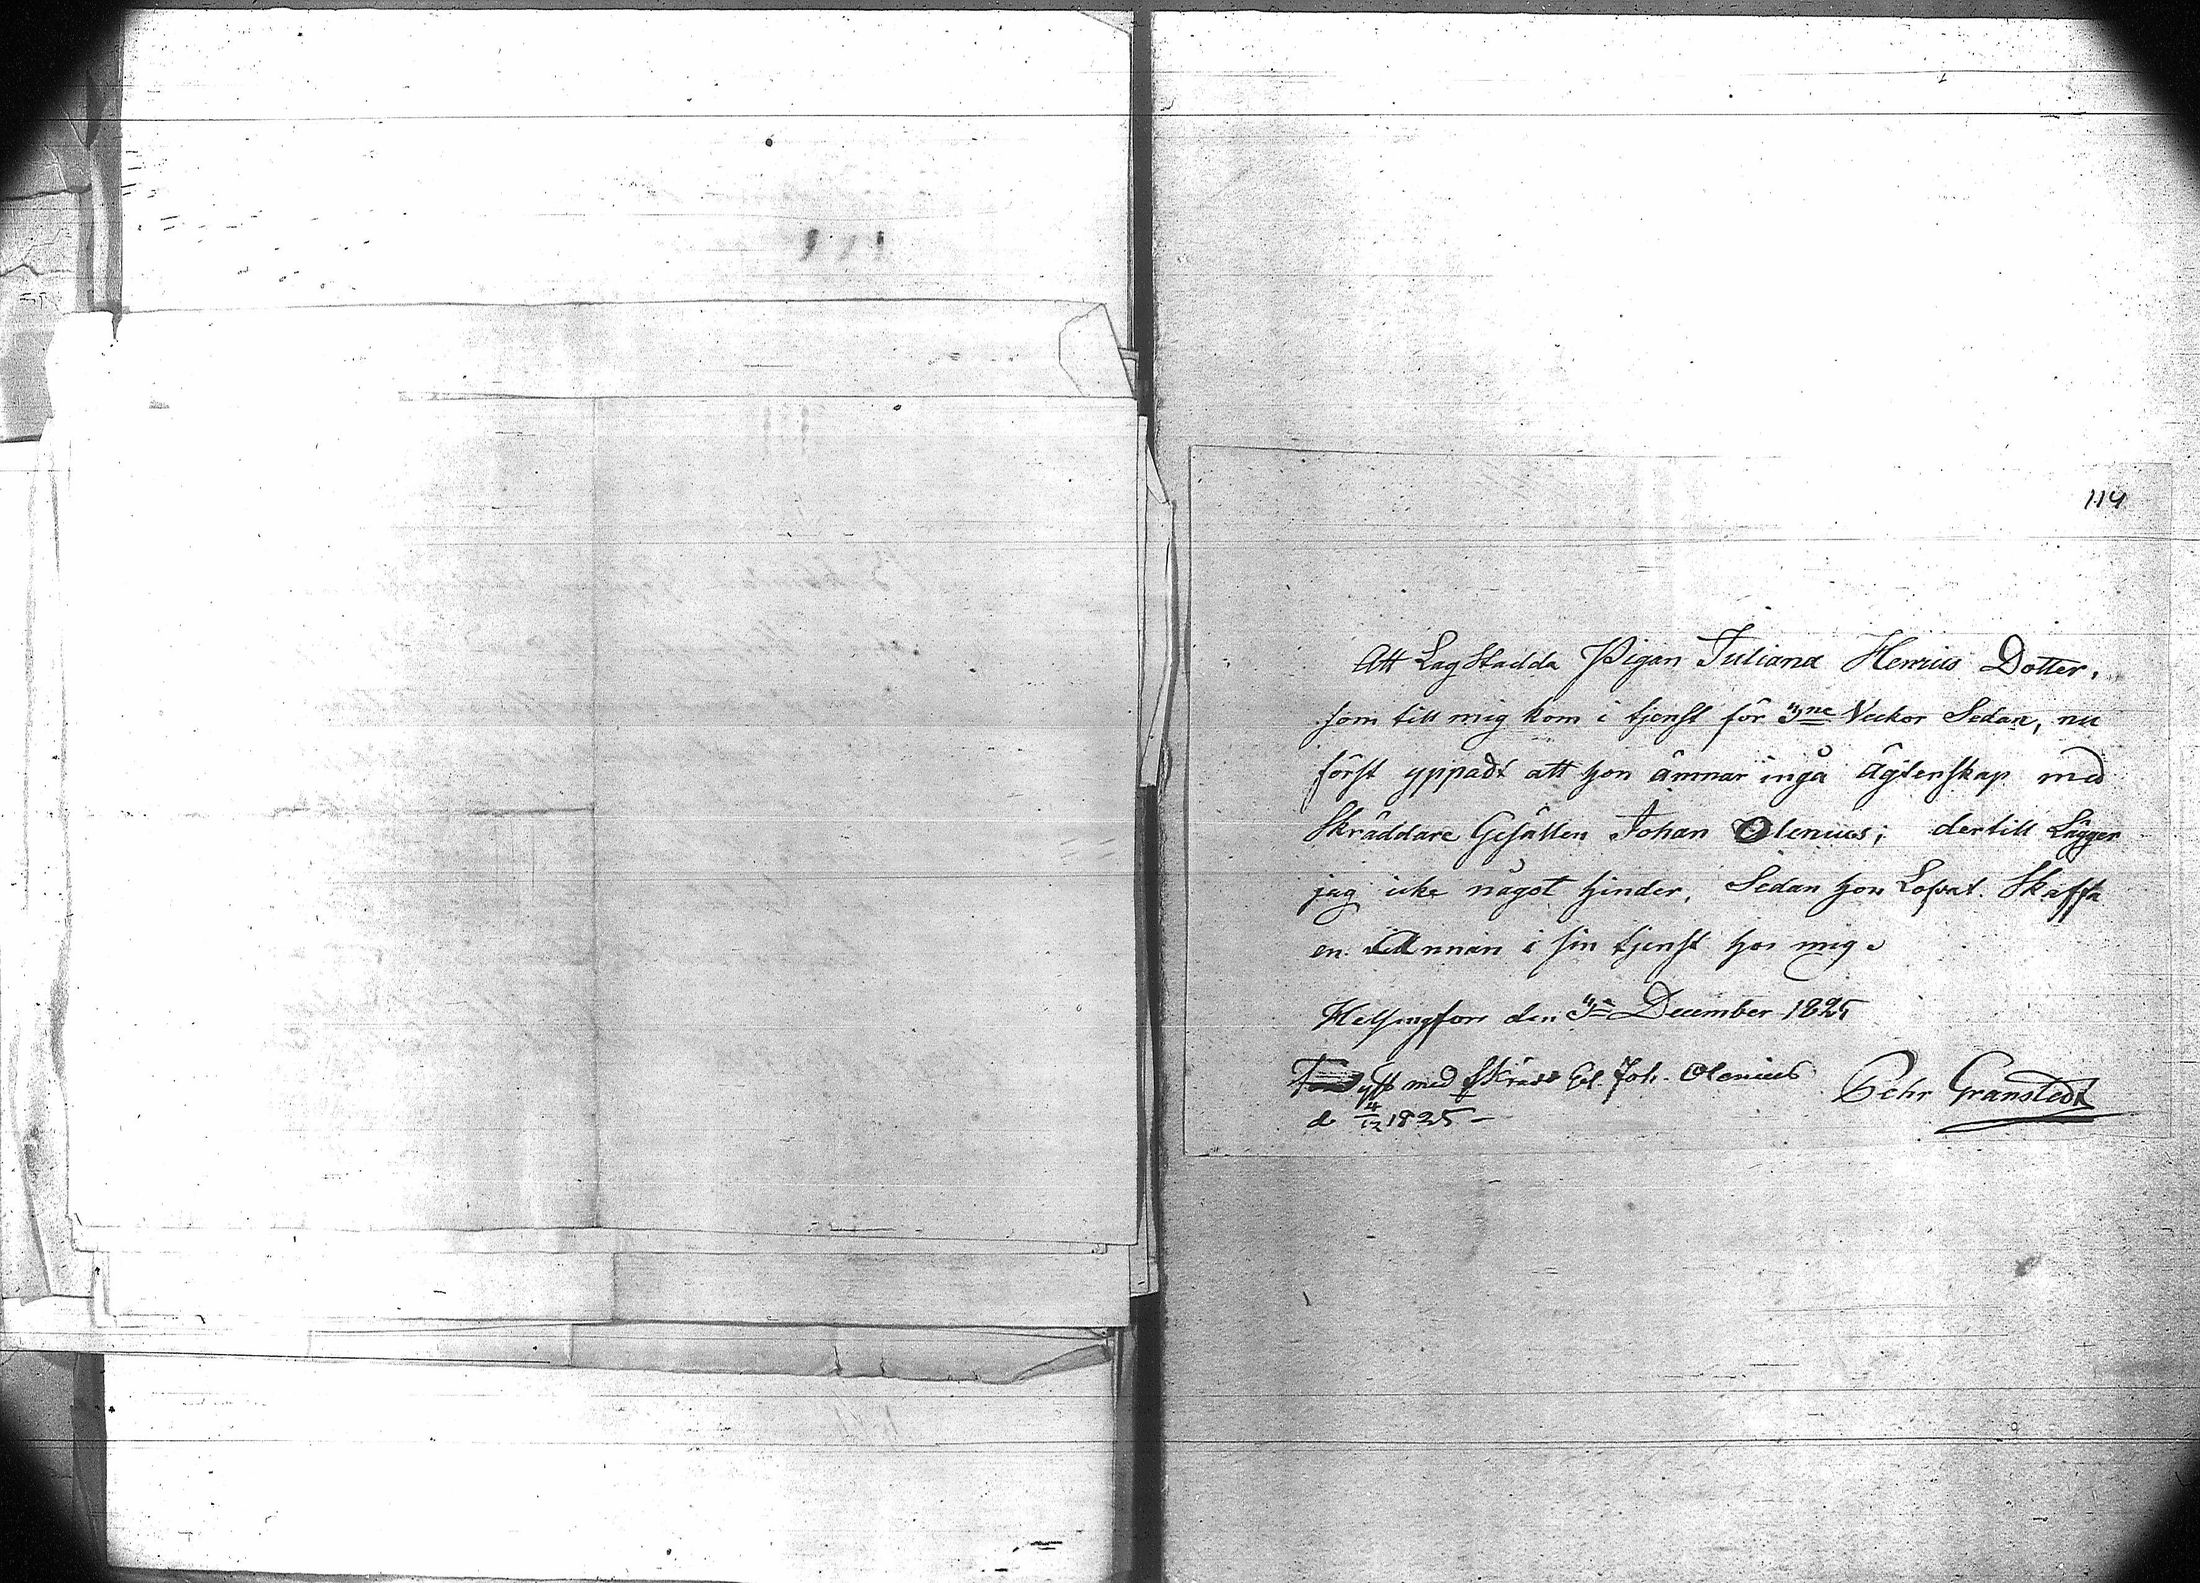 114
Att Lag Stadda Pigan Juliana Henrics Dotter,
som till mig kom i tjenst för 3ne Veckor Sedan, nu
först yppadt att hon ämnar ingå Ägtenskap med
Skräddare Gesällen Johan Olenius; dertill Lägger
jag icke något hinder, Sedan hon Lofvat Skaffa
en Annan i sin tjenst hos mig.
Helsingfors den 3e December 1825
Pehr Granstedt
med Skrädd Ges. Joh. Olenius
d 4/12 1825 –